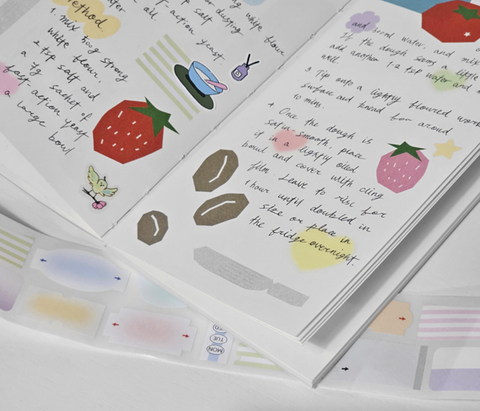 method
1 mix 500g strong
white flour
2 tsp salt and
a 7g sachet of
fast action yeast
a large bowl
and 300ml water, and mix
If the dough seems a little
add another 1-2 tbsp water and
well
3 Tip onto a lightly floured work
surface and knead for around
10 mins.
4 Once the dough is
satin smooth, place
it in a lightly oiled
bowl and cover with cling
film. Leave to rise for
1 hour until doubled in
size or place in
the fridge overnight.
TUE
MON